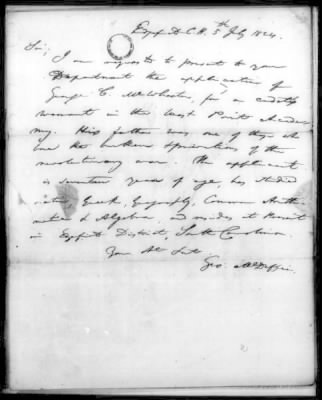 Edgefield C.H. 5th July 1824.
Sir,
I am requested to present to your
Department the application of
George C. McWhorter, for a cadet's
warrant in the West Point Academy
my. His father was one of those who
bore the hardships of the
revolutionary war. The applicant
is seventeen years of age, has studied
Greek, Geography, Common Arith-
metic & Algebra, and resides at
in Edgefield District, South Carolina.
Your Obt Servt
Geo. McDuffie